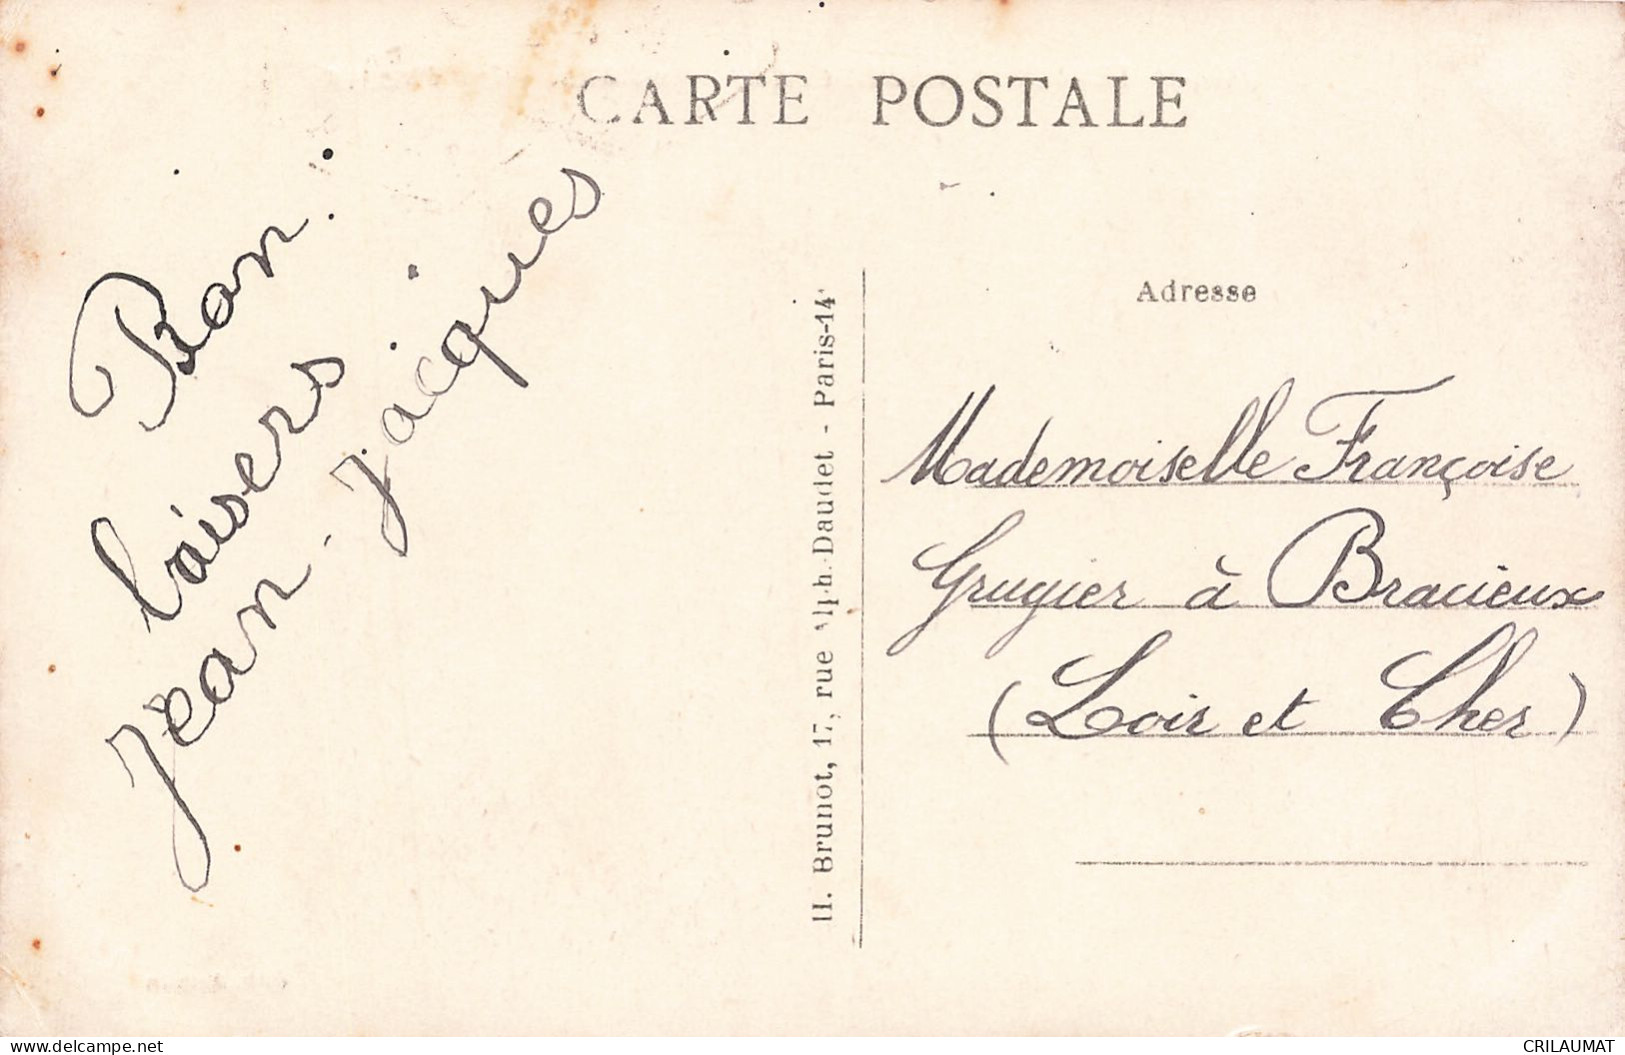 CARTE POSTALE
Bon
baisers
Jean-Jacques
H. Brunot, 17, rue Alph. Daudet - Paris-14ᵉ
Adresse
Mademoiselle Françoise
Grugier à Bracieux
(Loir et Cher)
www.delcampe.net
CRILAUMAT